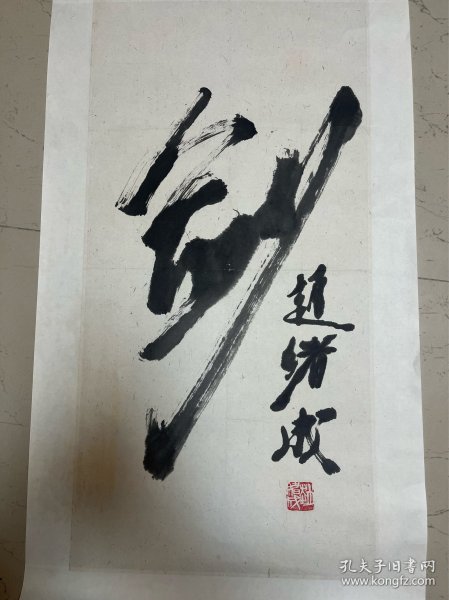 剑
趙绪成
孔夫子旧书网
www.kongfz.com